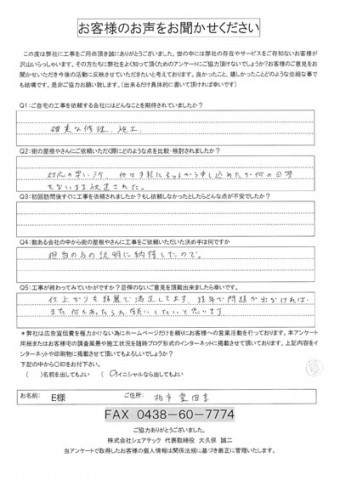 お客様のお声をお聞かせください
この度は弊社に工事をご用命頂き誠にありがとうございました。世の中には弊社の存在やサービスをご存知ないお客様が
沢山いらっしゃいます。その方たちに弊社をよく知って頂くためのアンケートにご協力頂けないでしょうか？お客様のご意見をお
聞かせいただき今後の活動に反映させていただきたいと考えております。良かったこと、嬉しかったことどのような些細な事で
も結構です。是非ご協力お願い致します。(出来るだけ具体的に書いて頂ければ幸いです)
Q1:ご自宅の工事を依頼する会社にはどんなことを期待されていましたか？
確実な修理、施工
Q2:街の屋根やさんにご依頼いただく際にどのような点を比較・検討されましたか？
対応の早い所、他は
Q3:初回訪問後すぐに工事を依頼されましたか？もし依頼しなかったとしたらどんな点が不安でしたか？
Q4:数ある会社の中から街の屋根やさんに工事をご依頼いただいた決め手は何ですか
担当の方の説明に納得したので。
Q5:工事が終わってみていかがですか？忌憚のないご意見を頂戴出来ましたら幸いです。
仕上がりも綺麗で満足してます。
また何かあったらお願いしたいと思います。
＊弊社は広告宣伝費を極力かけない為にホームページだけを頼りにお客様への営業活動を行っております。本アンケート
用紙またはお客様宅の調査風景や施工状況を随時ブログ形式のインターネットに掲載させて頂いております。上記内容をイ
ンターネットや印刷物に掲載させて頂いてもよろしいでしょうか？
下記の中から〇印をお付下さい。
( )名前を出してもよい (〇)イニシャルなら出してもよい
お名前: E様 ご住所:
FAX 0438-60-7774
ご協力ありがとうございました。
株式会社シェアテック 代表取締役 大久保 誠二
当アンケートで取得したお客様の個人情報は関係法規に基づき厳正に管理いたします。